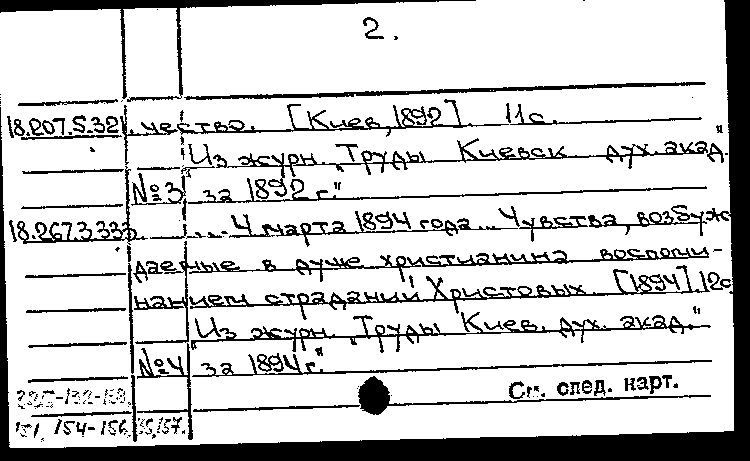 2.
18.207.5.321. чество. [Киев, 1892]. 11с.
"Из журн. "Труды Киевск. дух. акад."
№3 за 1892 г."
18.267.3.333. .... 4 марта 1894 года... Чувства, возбуж-
даемые в душе христианина воспоми-
нанием страданий Христовых. [1894]. 12с
"Из журн. "Труды Киев. дух. акад."
№4 за 1894г."
См. след. карт.
151, 154-156,